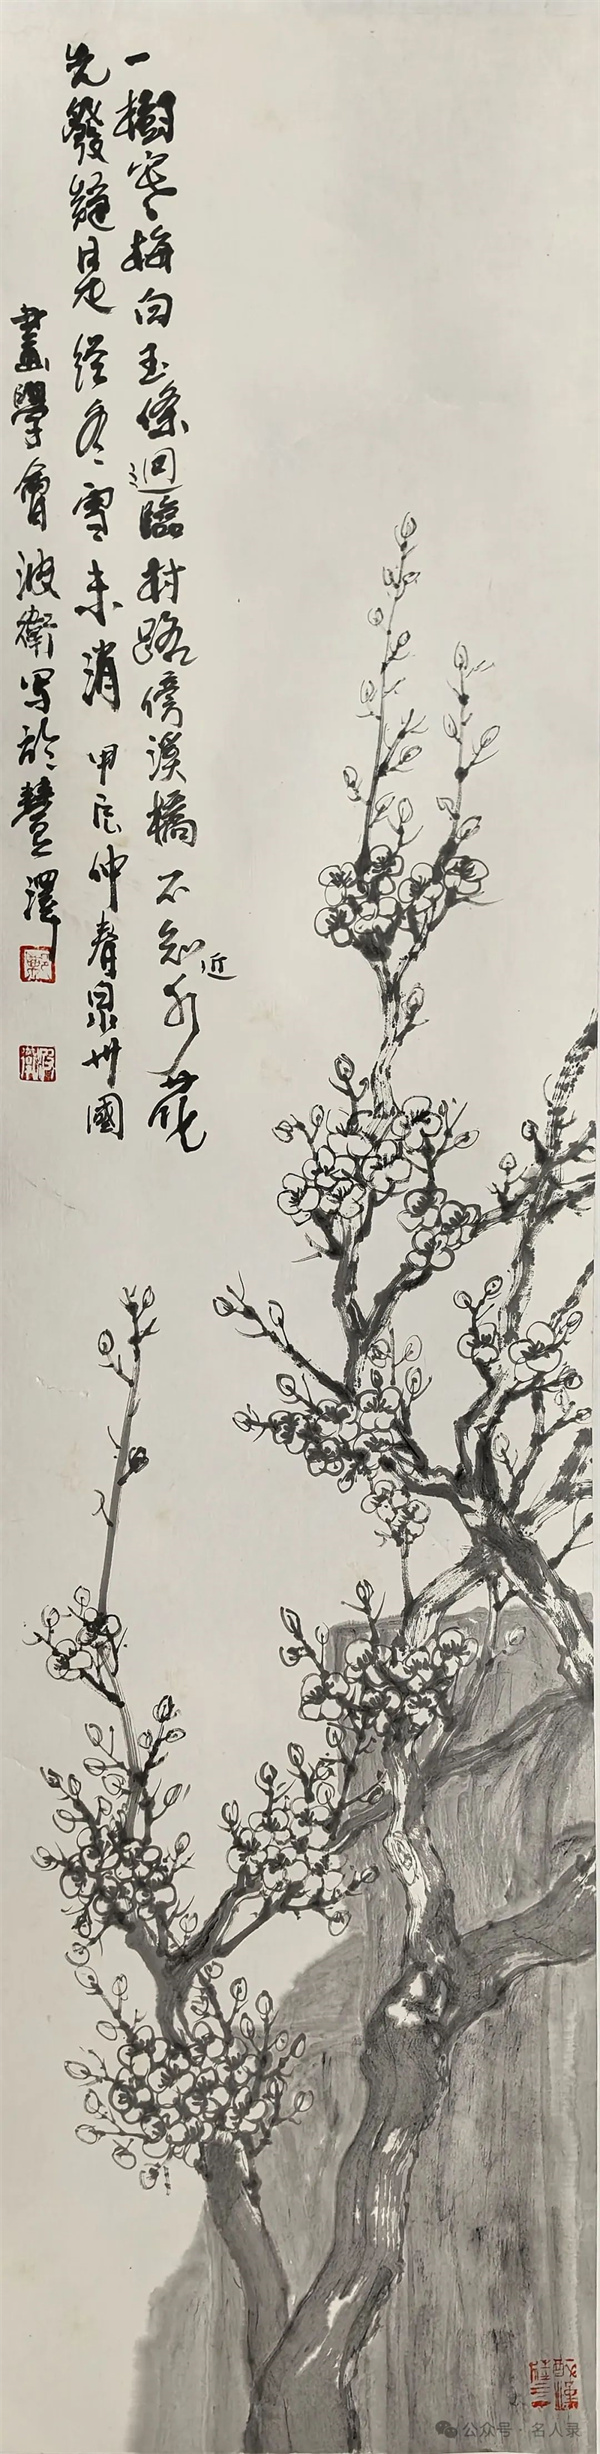 一樹寒梅白玉條迴臨村路傍溪橋不知近水花
先發疑是經冬雪未消 甲辰仲春泉州國
畫學會波衛写於慧澤
公众号 · 名人录